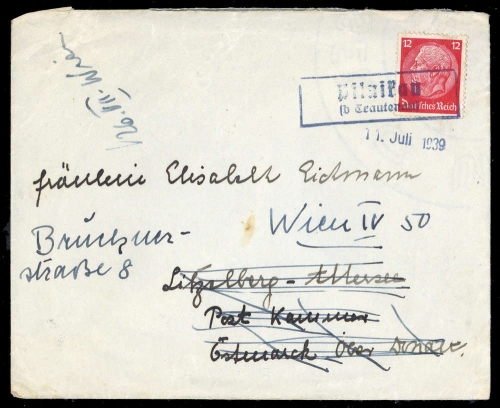 26. VII. Wien
12 12
Deutsches Reich
Pilnikau
üb Trautenau
11. Juli 1939
Fräulein Elisabeth Eichmann
Wien IV 50
Bruckner-
straße 8
Litzelberg-Attersee
Post Kammer
Ostmarck Ober Donau.